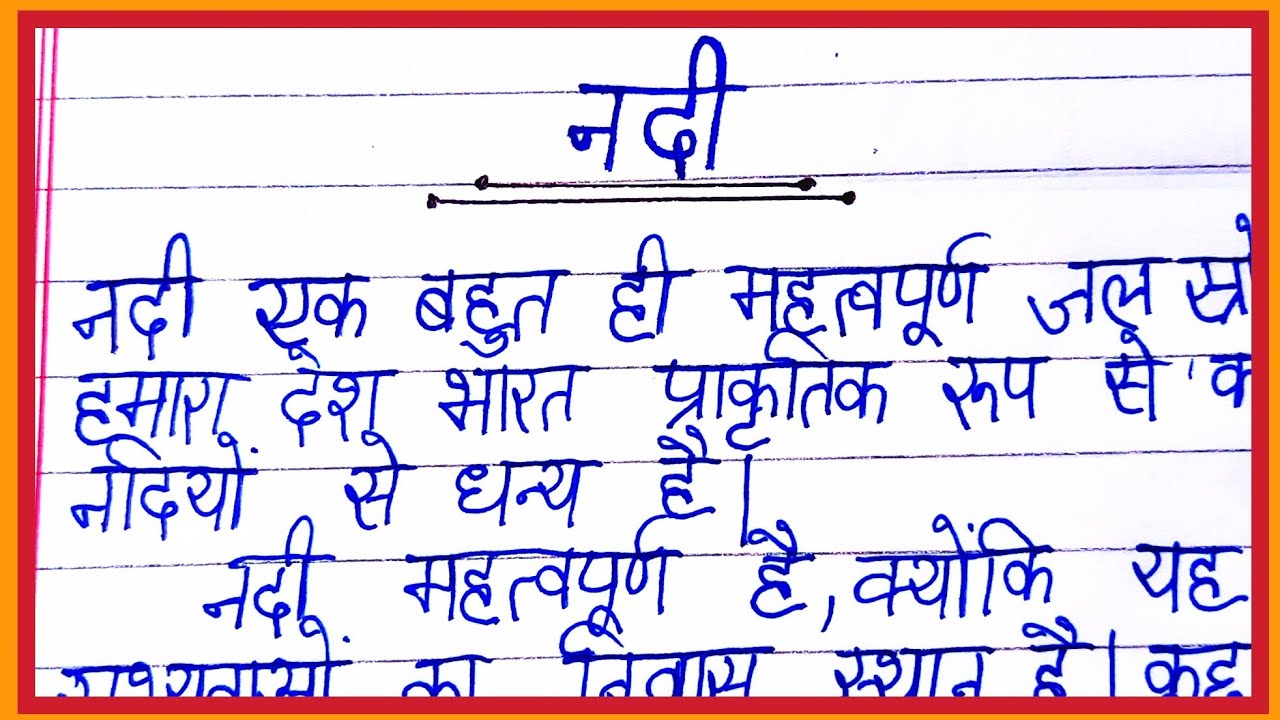 नदी
नदी एक बहुत ही महत्वपूर्ण जल
हमारा देश भारत प्राकृतिक रूप से
नदियों से धन्य है।
नदी महत्वपूर्ण है, क्योंकि यह
का निवास स्थान है। कुछ